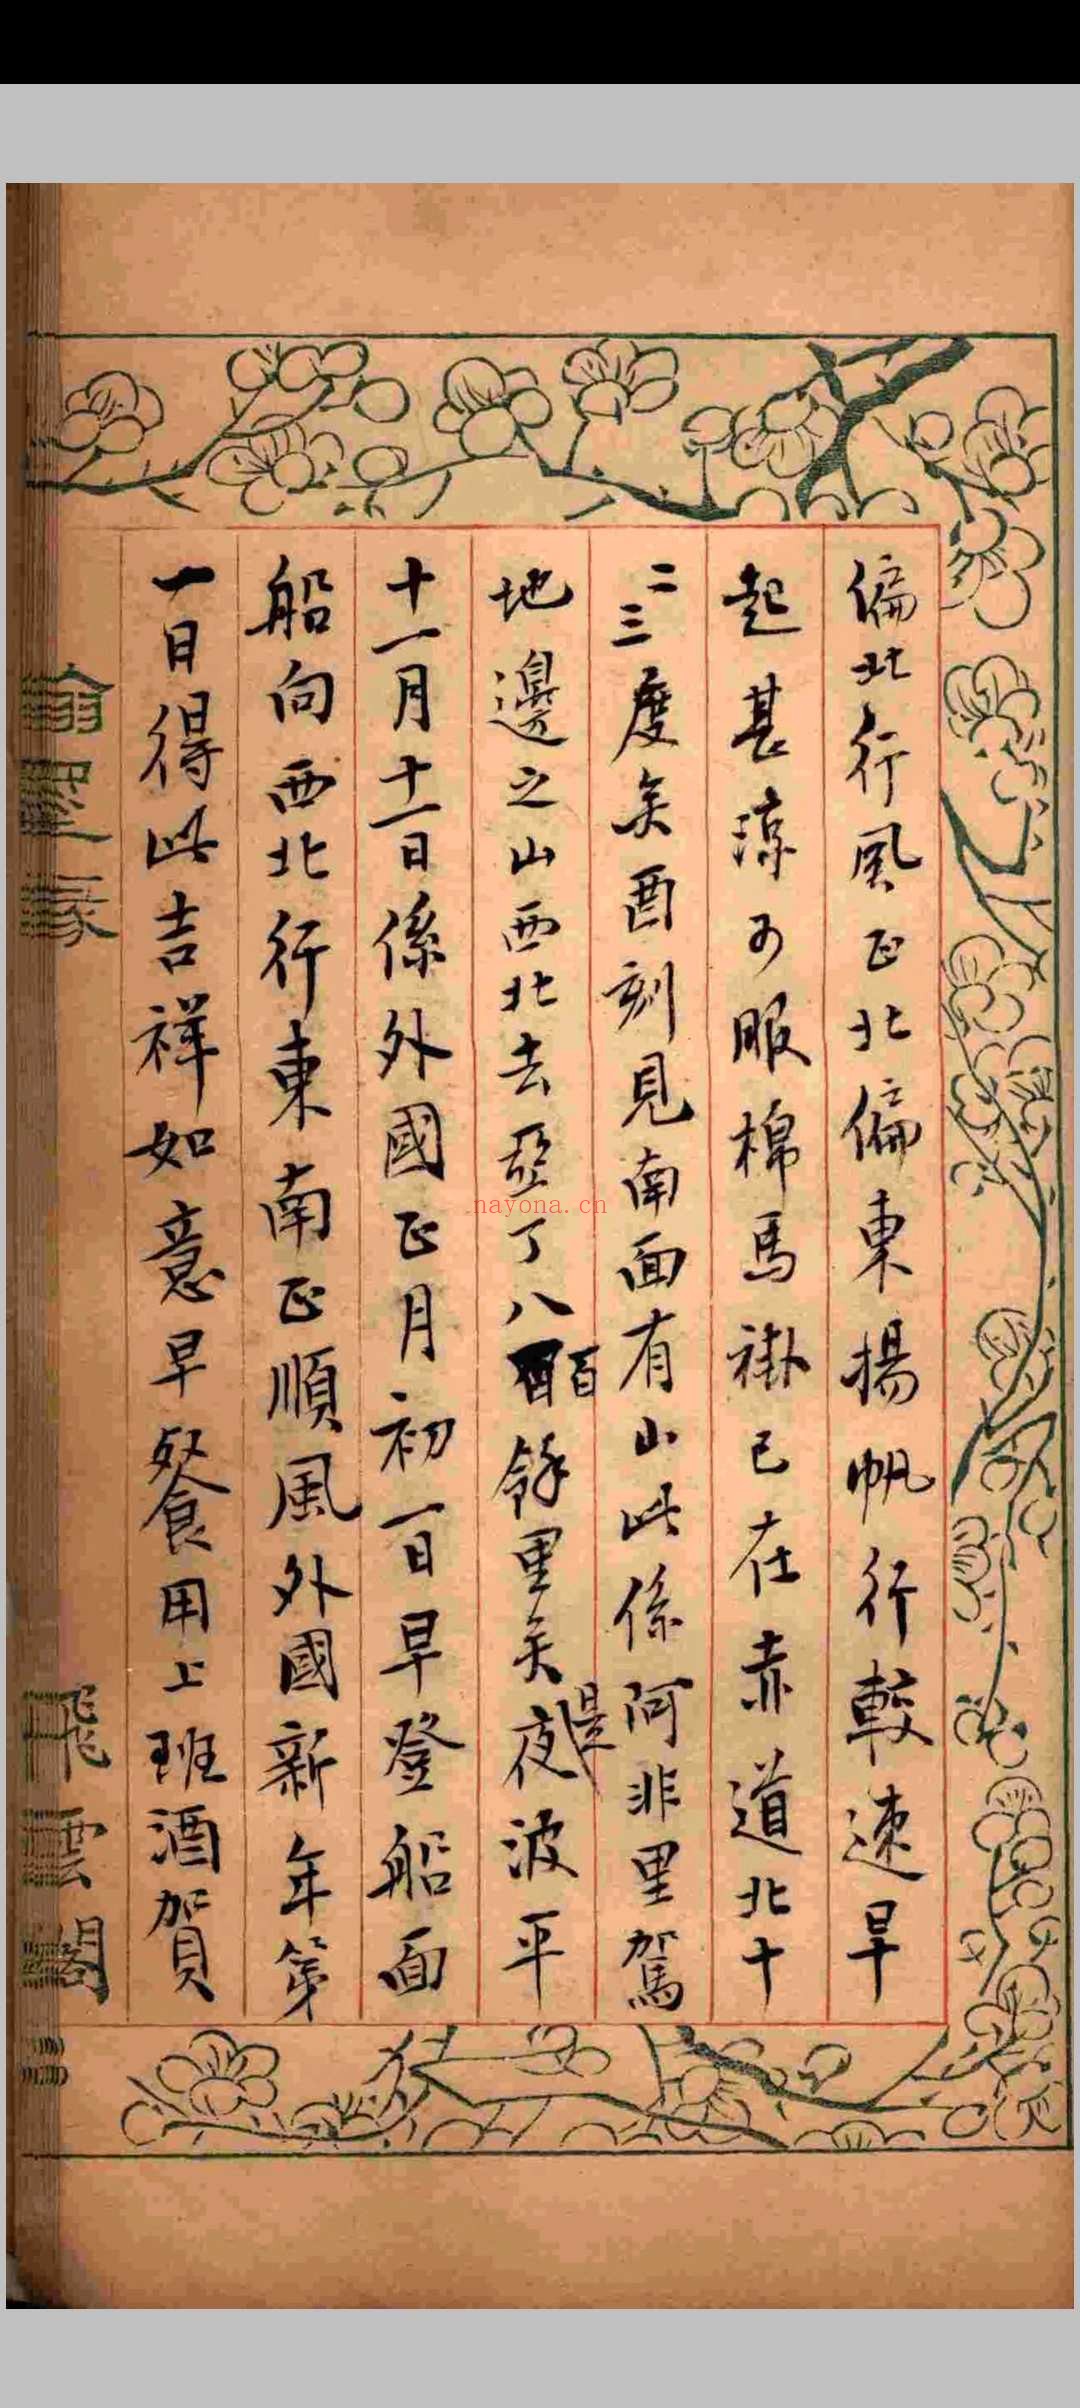 偏北行風正北偏東揚帆行較速早
起甚涼可服棉馬褂已在赤道北十
二三度矣酉刻見南面有山此係阿非里駕
地邊之山西北去亞丁八百餘里矣是夜波平
十一月十一日係外國正月初一日早登船面
船向西北行東南正順風外國新年第
一日得此吉祥如意早餐用上班酒賀
飛雲閣
nayona.cn